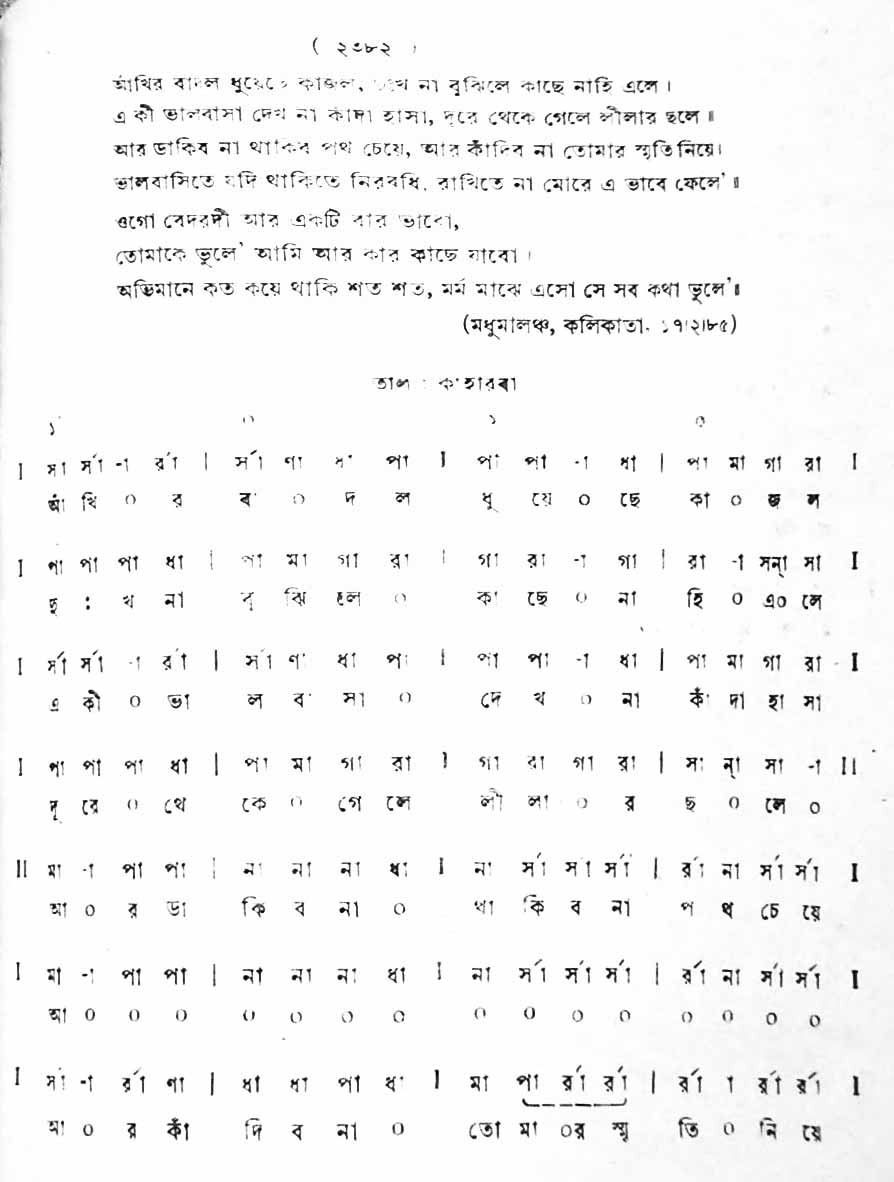 ( ২৩৮২ )
আঁখির বাদল ধুয়েছে কাজল, দুখে না বুঝিলে কাছে নাহি এলে।
এ কী ভালবাসা দেখ না কাঁদা হাসা, দূরে থেকে গেলে লীলার ছলে॥
আর ডাকিব না থাকিব পথ চেয়ে, আর কাঁদিব না তোমার স্মৃতি নিয়ে।
ভালবাসিতে যদি থাকিতে নিরবধি, রাখিতে না মোরে এ ভাবে ফেলে'॥
ওগো বেদরদী আর একটি বার ভাবো,
তোমাকে ভুলে' আমি আর কার কাছে যাবো।
অভিমানে কত কয়ে থাকি শত শত, মর্ম মাঝে এসো সে সব কথা ভুলে'॥
(মধুমালঞ্চ, কলিকাতা, ১৭।২।৮৫)
তাল : কাহারবা
১ ০ ১ ০
I সা র্সা -া র্রা | র্সা ণা ধা পা I পা পা -া ধা | পা মা গা রা I
আঁ খি ০ র বা ০ দ ল ধু য়ে ০ ছে কা ০ জ ল
I পা পা পা ধা | পা মা গা রা I গা রা -া গা | রা -া সন্‌া সা I
দু : খ না বু ঝি লে ০ কা ছে ০ না হি ০ এ০ লে
I র্সা র্সা -া র্রা | র্সা ণা ধা পা I পা পা -া ধা | পা মা গা রা I
এ কী ০ ভা ল বা সা ০ দে খ ০ না কাঁ দা হা সা
I পা পা পা ধা | পা মা গা রা I গা রা গা রা | সা ন্‌া সা -া II
দূ রে ০ থে কে ০ গে লে লী লা ০ র ছ ০ লে ০
II মা -া পা পা | না না না ধা I না র্সা র্সা র্সা | র্রা না র্সা র্সা I
আ ০ র ডা কি ব না ০ থা কি ব না প থ চে য়ে
I মা -া পা পা | না না না ধা I না র্সা র্সা র্সা | র্রা না র্সা র্সা I
আ ০ ০ ০ ০ ০ ০ ০ ০ ০ ০ ০ ০ ০ ০ ০
I র্সা -া র্রা ণা | ধা ধা পা ধা I মা পা র্রা র্রা | র্রা া র্রা র্রা I
আ ০ র কাঁ দি ব না ০ তো মা ০র স্মৃ তি ০ নি য়ে